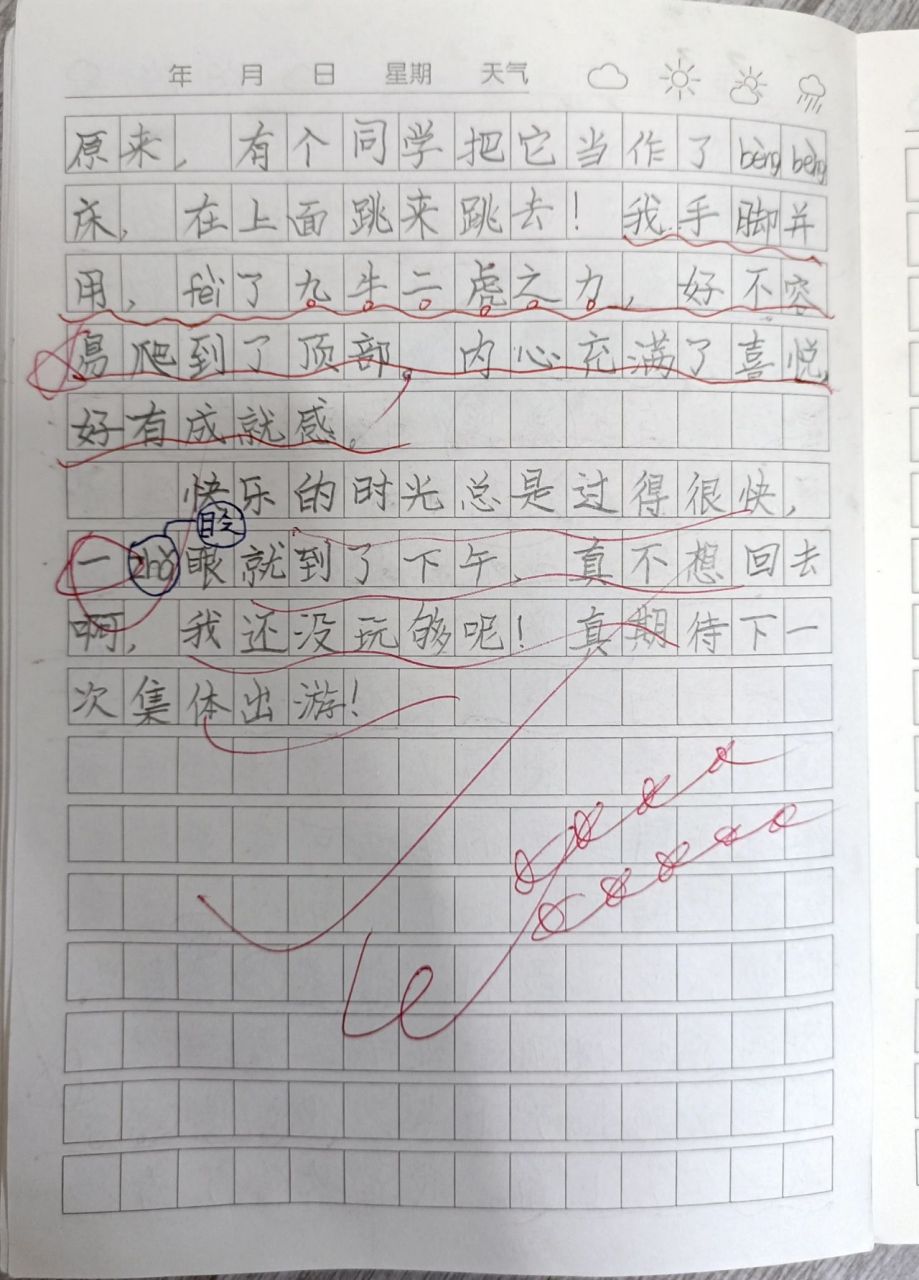 年 月 日 星期 天气
原来，有个同学把它当作了bèng bèng
床，在上面跳来跳去！我手脚并
用，fèi了九牛二虎之力，好不容
易爬到了顶部。内心充满了喜悦，
好有成就感。
快乐的时光总是过得很快，
一眼就到了下午，真不想回去
啊，我还没玩够呢！真期待下一
次集体出游！